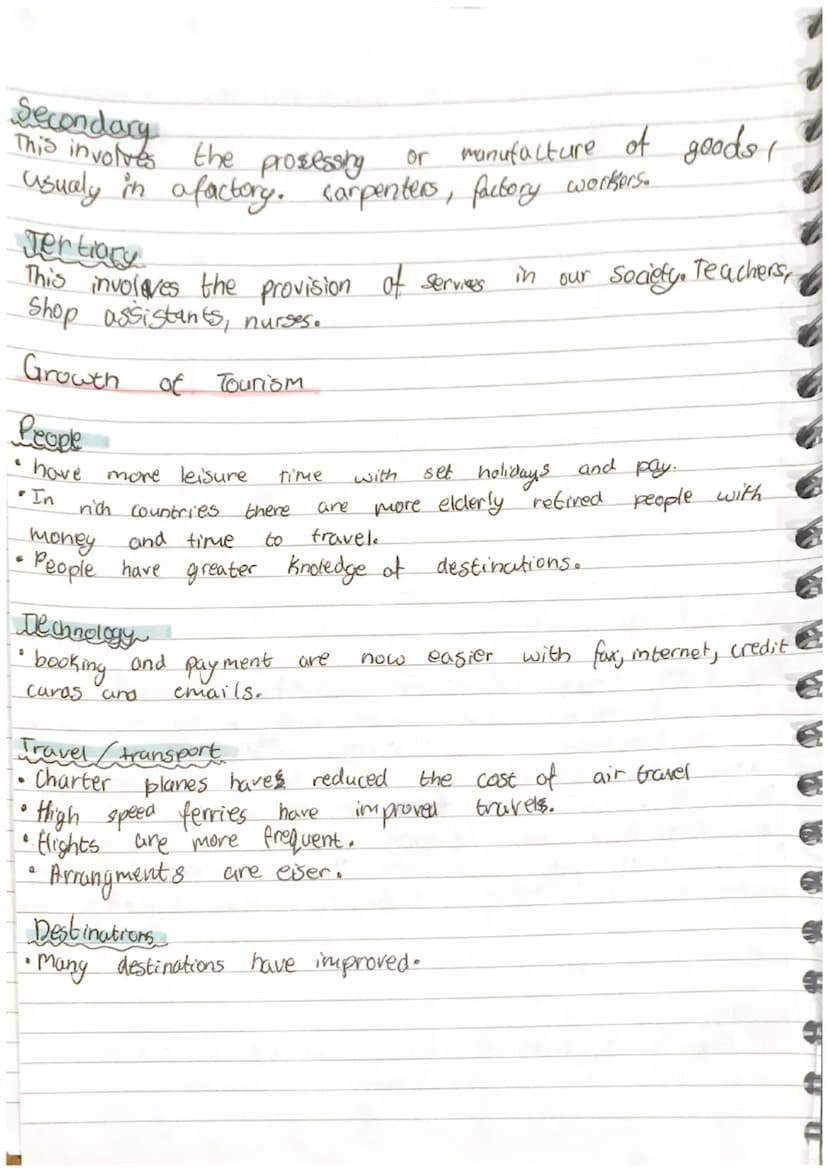 Secondary
This involves the prosessing or manufacture of goods,
usually in a factory. carpenters, factory workers.
Tertiary
This involves the provision of servies in our society. Teachers,
Shop assistants, nurses.
Growth of Tourism
People
• have more leisure time with set holidays and pay.
• In rich countries there are more elderly retired people with
money and time to travel.
• People have greater knoledge of destinations.
Technology
• booking and payment are now easier with fax, internet, credit
cards and emails.
Travel/transport
• Charter planes have reduced the cost of air travel
• High speed ferries have improved travels.
• flights are more frequent.
• Arrangments are eiser.
Destinations
• Many destinations have improved.